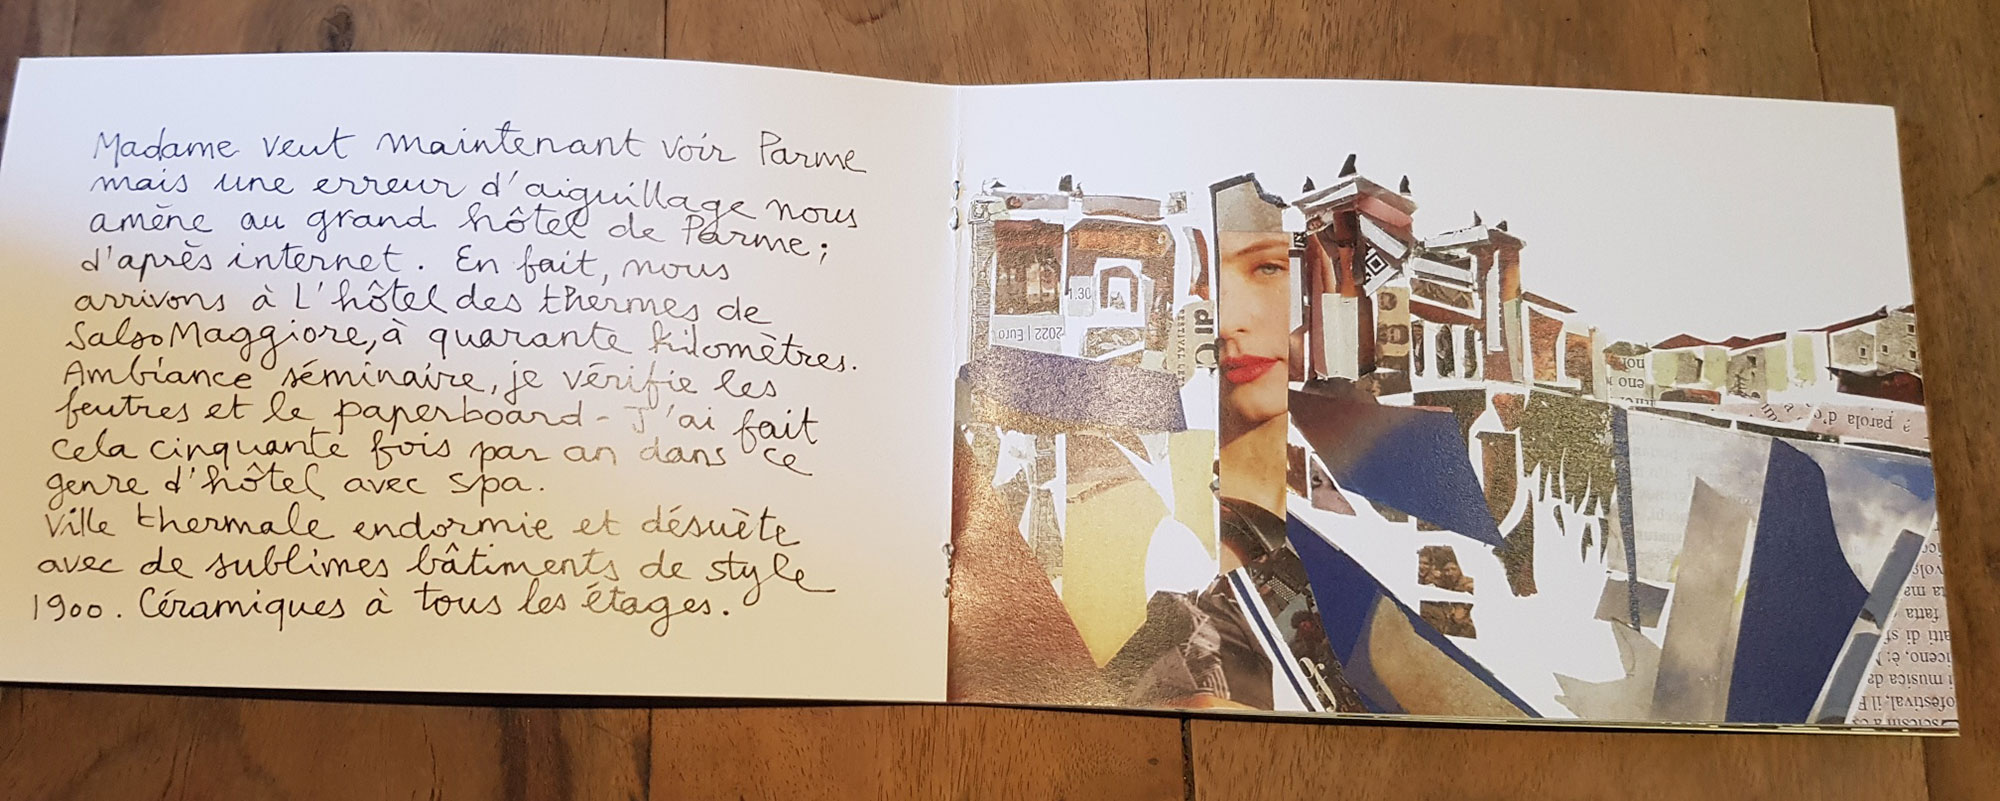 Madame veut maintenant voir Parme
mais une erreur d'aiguillage nous
amène au grand hôtel de Parme ;
d'après internet. En fait, nous
arrivons à L'hôtel des thermes de
Salso Maggiore, à quarante kilomètres.
Ambiance séminaire, je vérifie les
feutres et le paperboard - J'ai fait
cela cinquante fois par an dans ce
genre d'hôtel avec spa.
Ville thermale endormie et désuète
avec de sublimes bâtiments de style
1900. Céramiques à tous les étages.
1.30
2022 | Euro
di
? parola d'o
fatta
atti di sf
iceno, è: N
i musica da
ofestival, il F